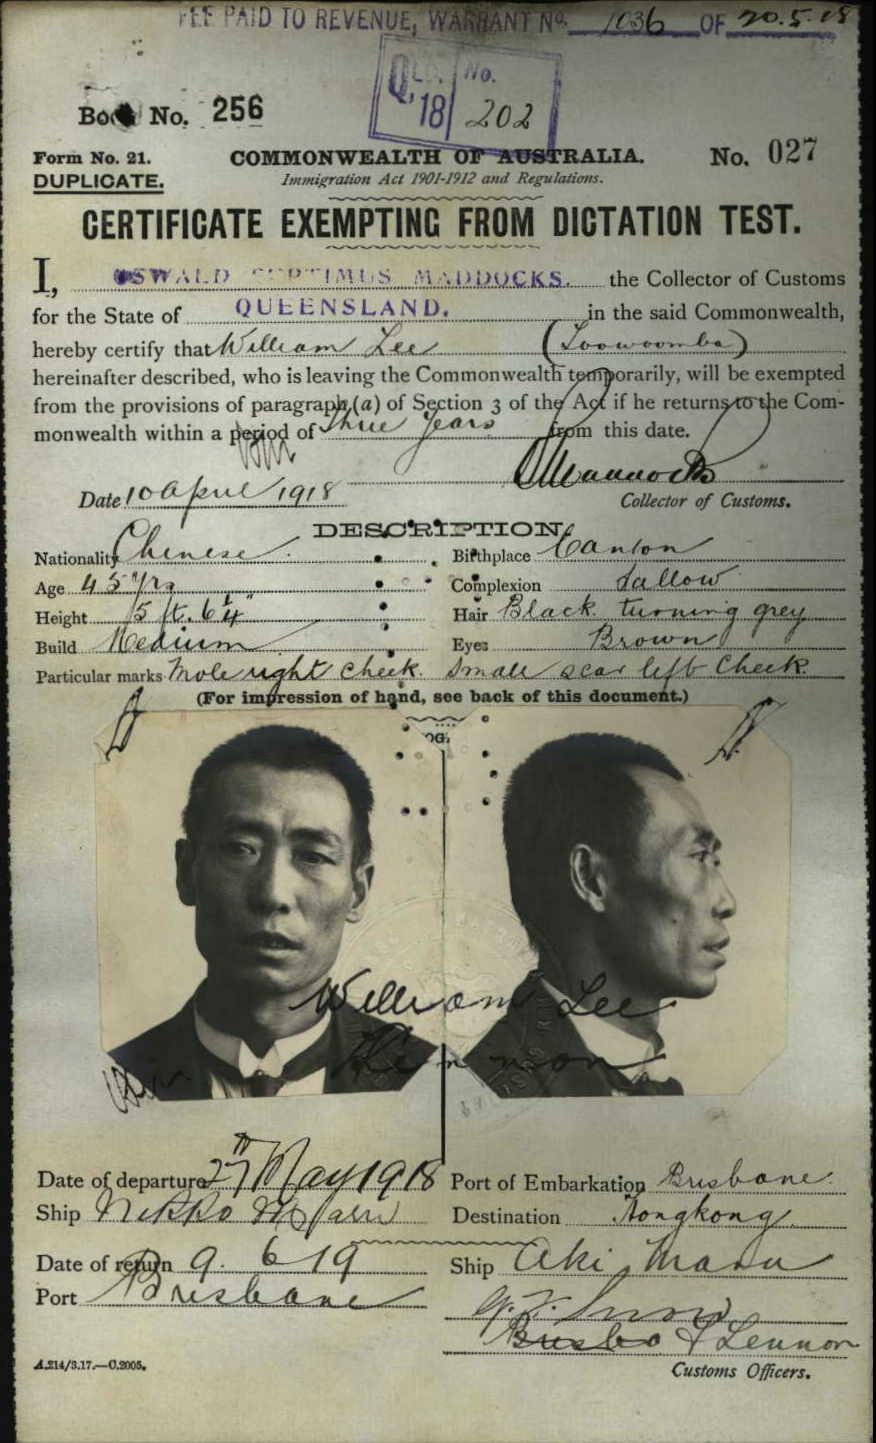 FEE PAID TO REVENUE, WARRANT No. 1036 OF 20.5.18
Book No. 256
QLD. No.
18/202
Form No. 21.
COMMONWEALTH OF AUSTRALIA.
No. 027
DUPLICATE.
Immigration Act 1901-1912 and Regulations.
CERTIFICATE EXEMPTING FROM DICTATION TEST.
I, OSWALD SEPTIMUS MADDOCKS. the Collector of Customs
for the State of QUEENSLAND. in the said Commonwealth,
hereby certify that William Lee (Toowoomba)
hereinafter described, who is leaving the Commonwealth temporarily, will be exempted
from the provisions of paragraph (a) of Section 3 of the Act if he returns to the Com-
monwealth within a period of Three Years from this date.
Date 10 April 1918
Collector of Customs.
DESCRIPTION.
Nationality Chinese. Birthplace Canton
Age 45 yrs Complexion Sallow
Height 5 ft. 6¼" Hair Black turning grey
Build Medium Eyes Brown
Particular marks Mole right cheek. Small scar left Cheek.
(For impression of hand, see back of this document.)
William Lee
Date of departure 27th May 1918 Port of Embarkation Brisbane.
Ship Nikko Maru Destination Hongkong.
Date of return 9. 6 19 Ship Aki Maru
Port Brisbane
Lennon
A.214/3.17.—C.2005.
Customs Officers.